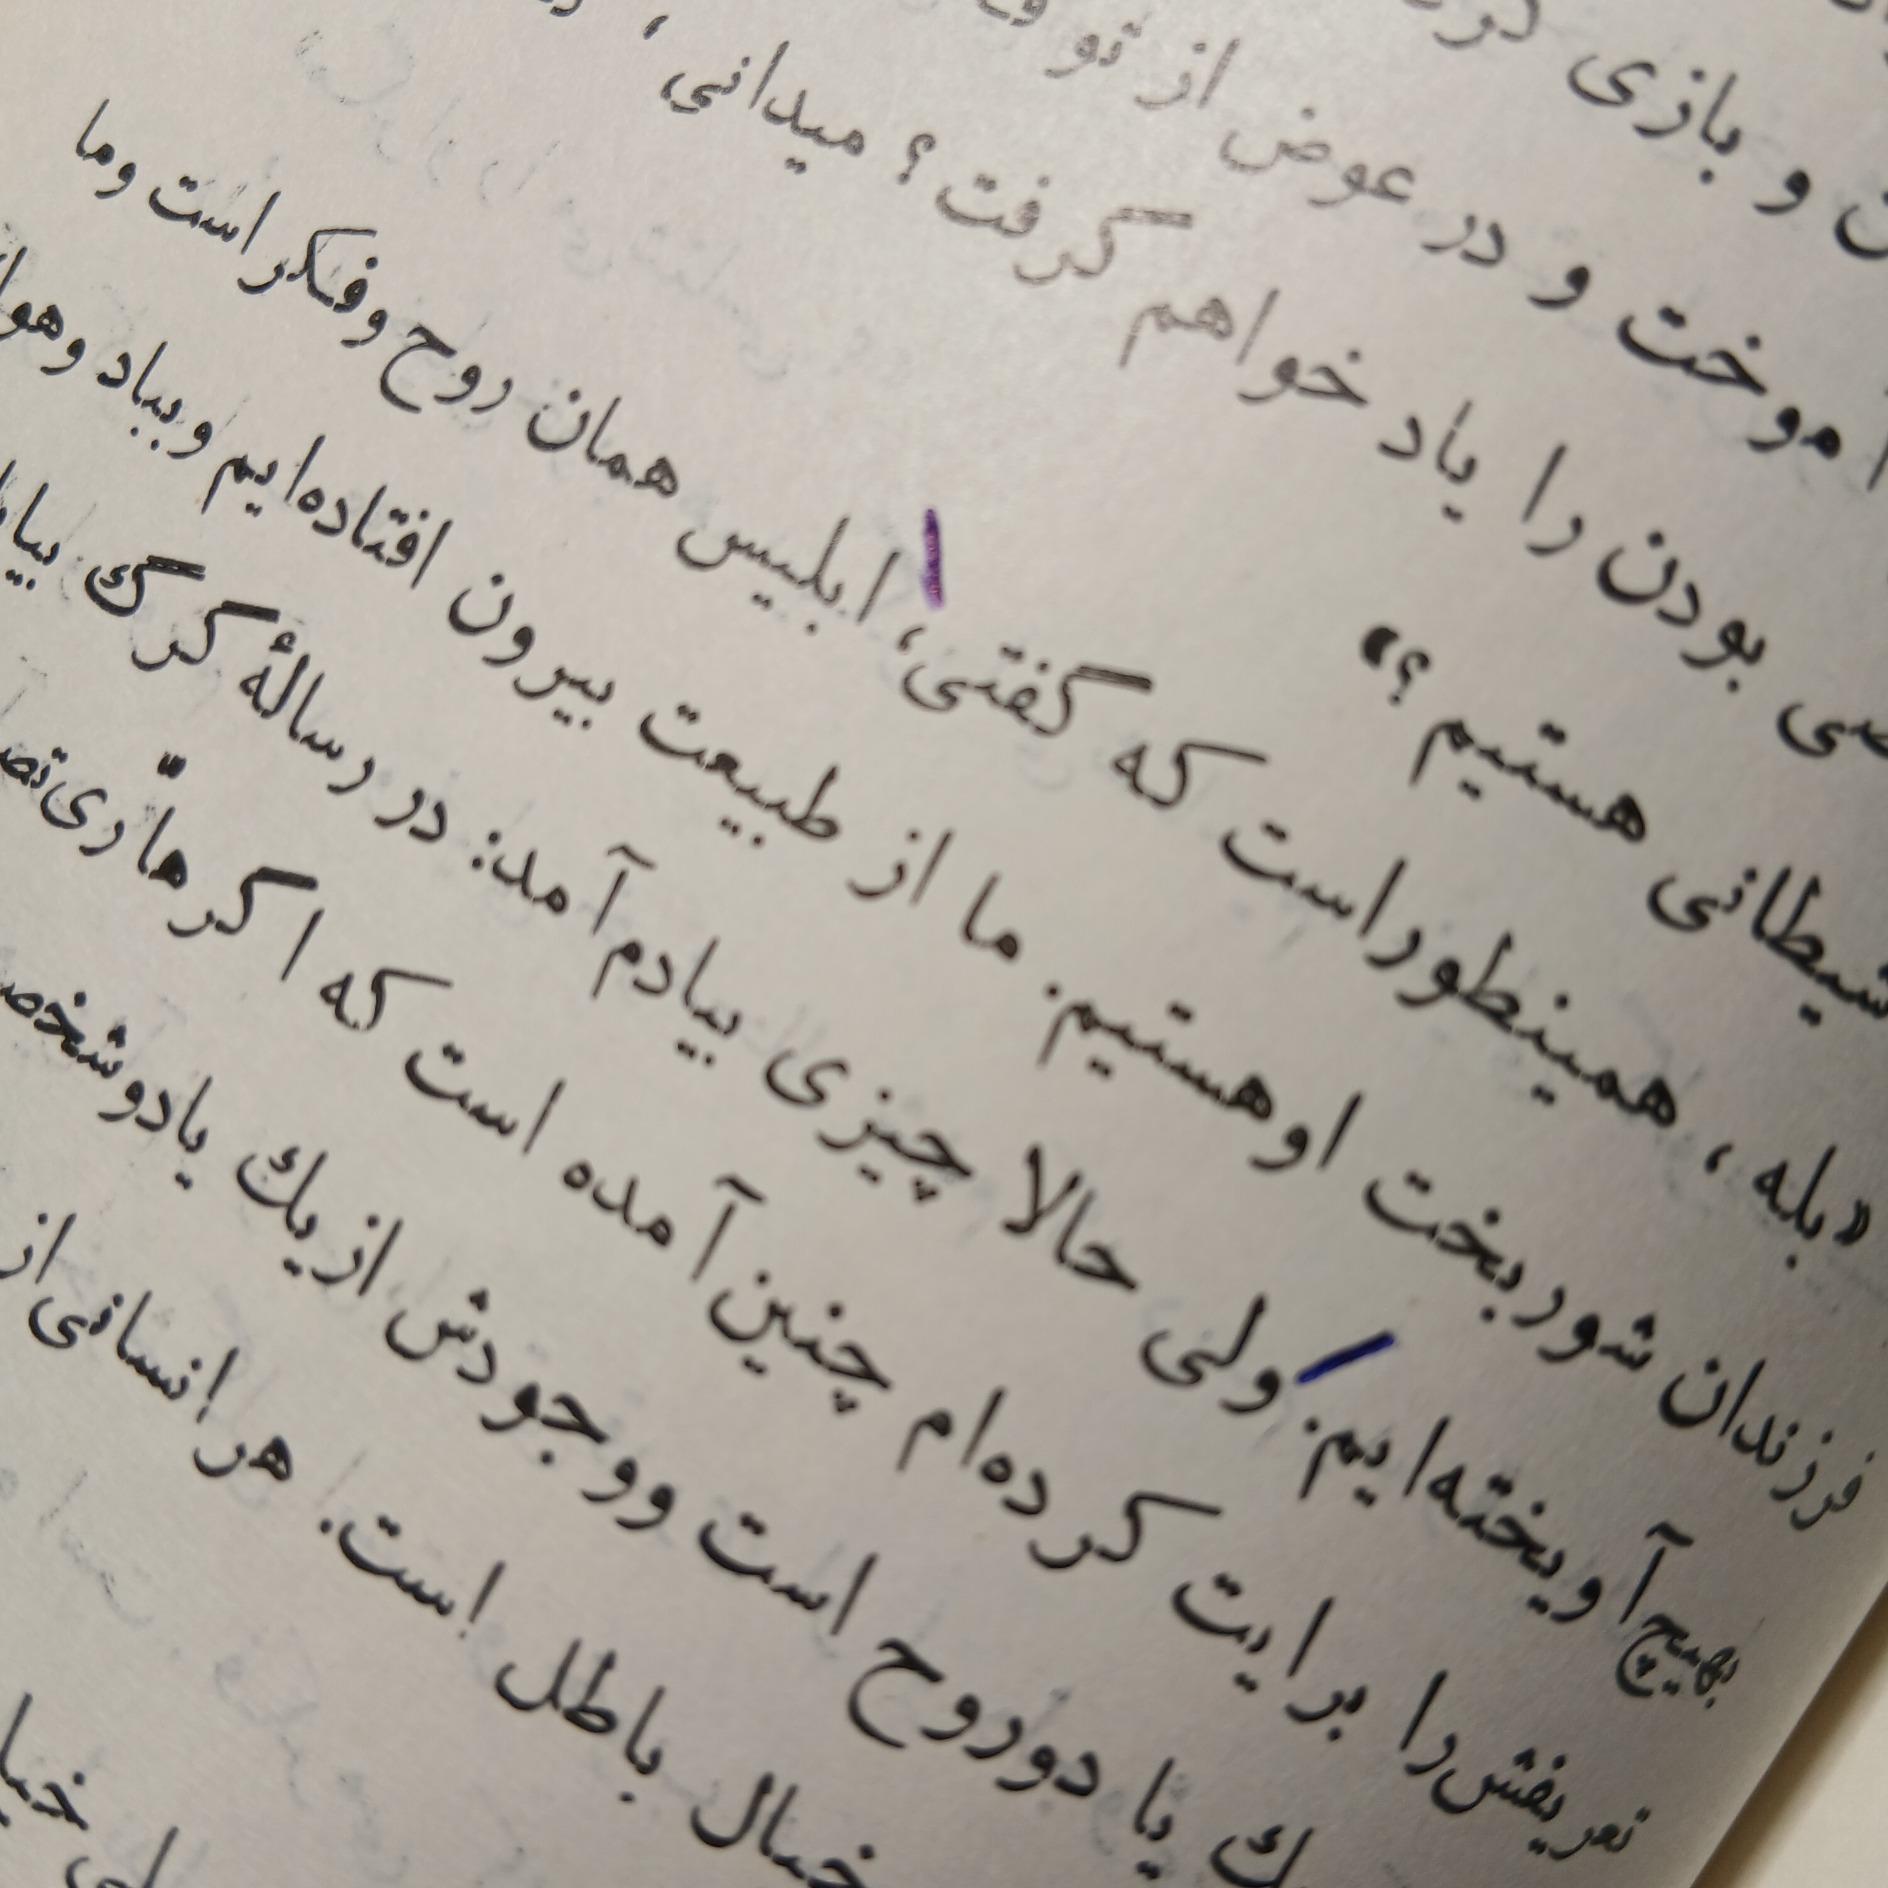 و بازی
آموخت و در عوض از تو
بودن را یاد خواهم گرفت؟ میدانی،
شیطانی هستیم؟»
«بله، همینطور است که گفتی، ابلیس همان روح و فکر است و ما
فرزندان شوربخت او هستیم. ما از طبیعت بیرون افتاده‌ایم و بباد و هوا
بهیچ آویخته‌ایم. ولی حالا چیزی بیادم آمد: در رسالهٔ گرگ
تعریفش را برایت کرده‌ام چنین آمده است که اگر هارّی
یا دو روح است و وجودش از یك یا دو شخص
خیال باطل است. هر انسانی از